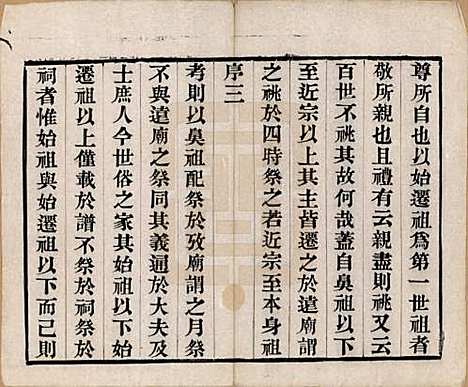 尊所自也以始遷祖爲第一世祖者
敬所親也且禮有云親盡則祧又云
百世不祧其故何哉蓋自臬祖以下
至近宗以上其主皆遷之於遠廟謂
之祧於四時祭之若近宗至本身祖
序三
考則以臬祖配祭於攷廟謂之月祭
不與遠廟之祭同其義通於大夫及
士庶人今世俗之家其始祖以下始
遷祖以上僅載於譜不祭於祠祭於
祠者惟始祖與始遷祖以下而已則